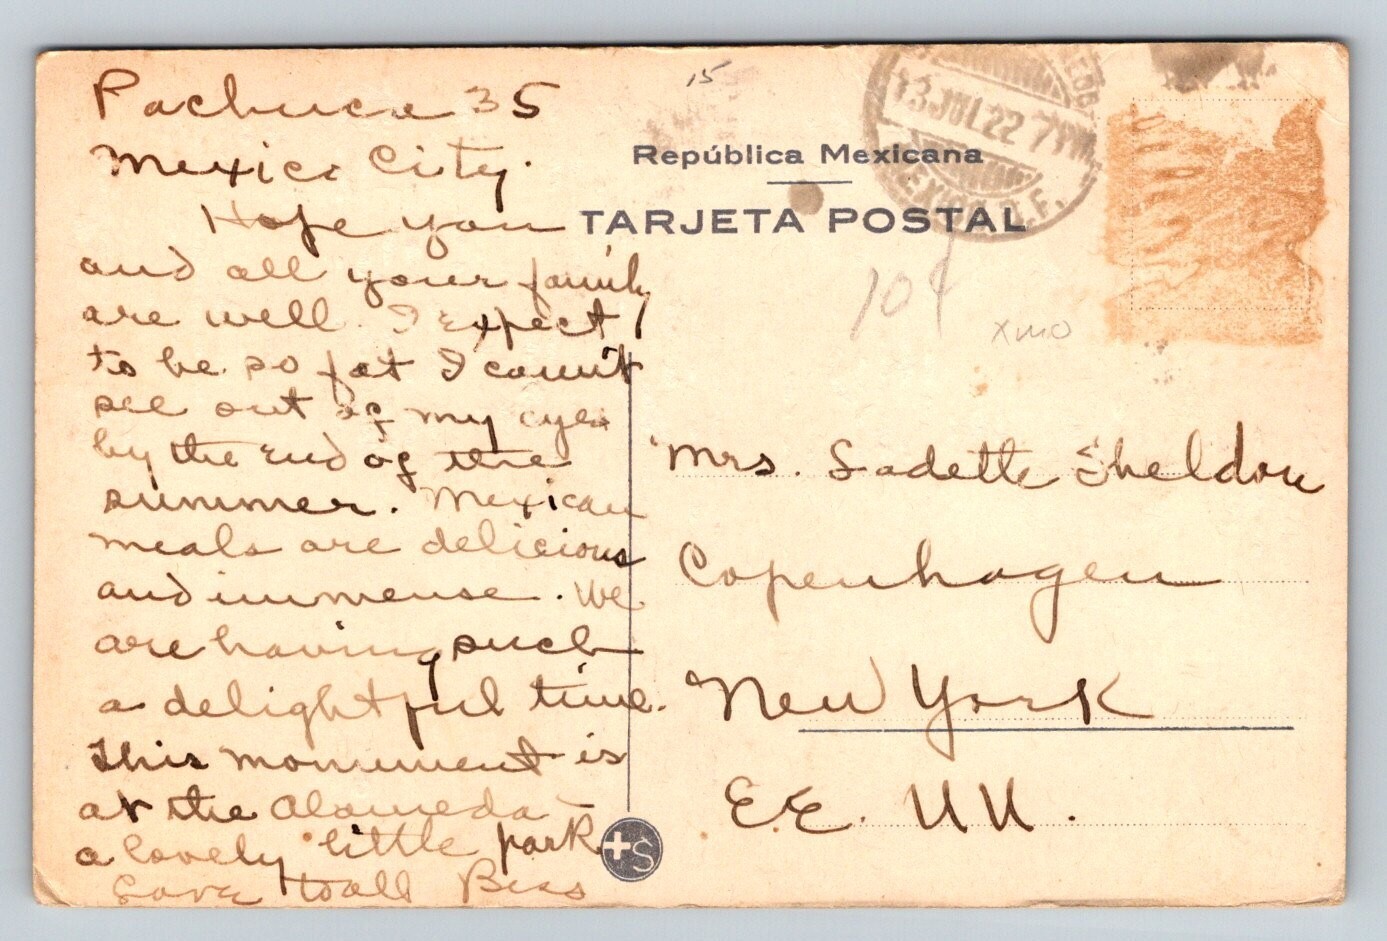 Pachuca 35
Mexico City.
Hope you
and all your family
are well. I expect
to be so fat I can't
see out of my eyes
by the end of the
summer. Mexican
meals are delicious
and immense. We
are having such
a delightful time.
This monument is
at the Alameda —
a lovely little park
Love to all Bess
15
13 JUL 22 7 PM
MEXICO D.F.
República Mexicana
TARJETA POSTAL
10¢
XMO
Mrs. Sadette Sheldon
Copenhagen
New York
E.E. U.U.
+S